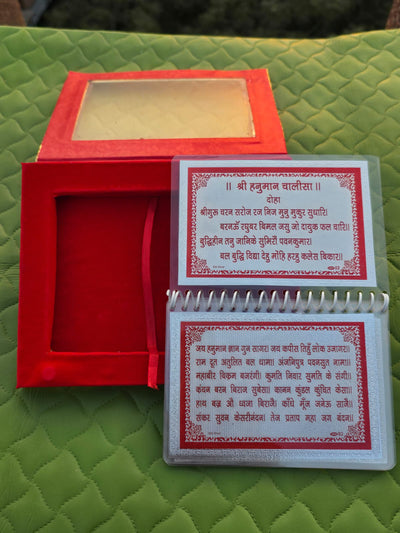 ॥ श्री हनुमान चालीसा ॥
दोहा
श्रीगुरु चरन सरोज रज निज मुनु मुकुर सुधारि।
बरनऊँ रघुबर बिमल जसु जो दायुक फल चारि॥
बुद्धिहीन तनु जानिके सुमिरौं पवनकुमार।
बल बुद्धि विद्या देहु मोहि हरहु कलेस बिकार॥
जय हनुमान ज्ञान गुन सागर। जय कपीस तिहुँ लोक उजागर॥
राम दूत अतुलित बल धामा। अंजनिपुत्र पवनसुत नामा॥
महाबीर विक्रम बजरंगी। कुमति निवार सुमति के संगी॥
कंचन बरन बिराज सुबेसा। कानन कुंडल कुंचित केसा॥
हाथ बज्र औ ध्वजा बिराजै। काँधे मूँज जनेऊ साजै॥
संकर सुवन केसरीनंदन। तेज प्रताप महा जग बंदन॥